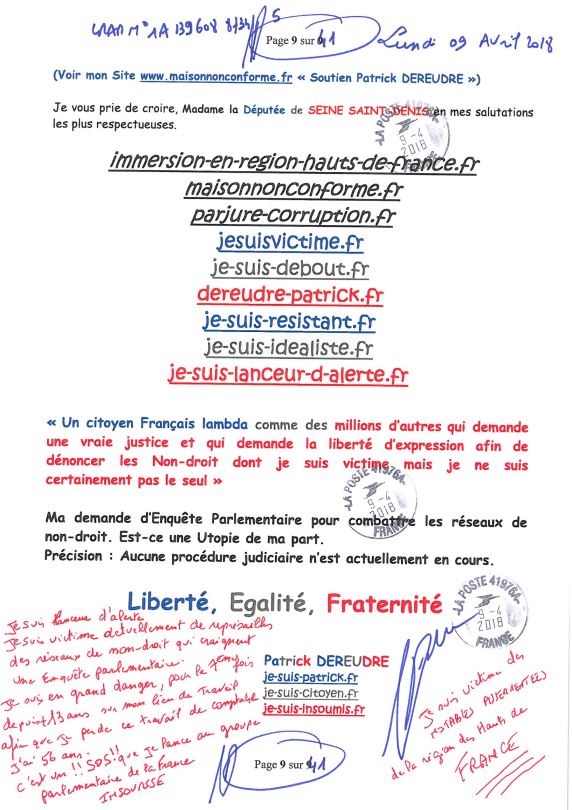 LRAR N° 1A 139 608 8134 5
Page 9 sur 41
Lundi 09 Avril 2018
(Voir mon Site www.maisonnonconforme.fr « Soutien Patrick DEREUDRE »)
Je vous prie de croire, Madame la Députée de SEINE SAINT DENIS en mes salutations
les plus respectueuses.
LA POSTE 419764
9-4
2018
FRANCE
immersion-en-region-hauts-de-france.fr
maisonnonconforme.fr
parjure-corruption.fr
jesuisvictime.fr
je-suis-debout.fr
dereudre-patrick.fr
je-suis-resistant.fr
je-suis-idealiste.fr
je-suis-lanceur-d-alerte.fr
« Un citoyen Français lambda comme des millions d'autres qui demande
une vraie justice et qui demande la liberté d'expression afin de
dénoncer les Non-droit dont je suis victime mais je ne suis
certainement pas le seul »
LA POSTE 419764
9-4
2018
FRANCE
Ma demande d'Enquête Parlementaire pour combattre les réseaux de
non-droit. Est-ce une Utopie de ma part.
Précision : Aucune procédure judiciaire n'est actuellement en cours.
Liberté, Egalité, Fraternité
LA POSTE 419764
9-4
2018
FRANCE
Je suis lanceur d'alerte
Je suis victime actuellement de représailles
des réseaux de non-droit qui craignent
une Enquête parlementaire.
Je suis en grand danger, pour la 7emefois
depuis 13 ans sur mon lieu de Travail
afin que je perde ce travail de comptable
J'ai 56 ans.
C'est un !! SOS !! que je lance au groupe
parlementaire de la France
INSOUMISE
Patrick DEREUDRE
je-suis-patrick.fr
je-suis-citoyen.fr
je-suis-insoumis.fr
Je suis victime des
NOTABLES
de la région des Hauts de
FRANCE
Page 9 sur 41